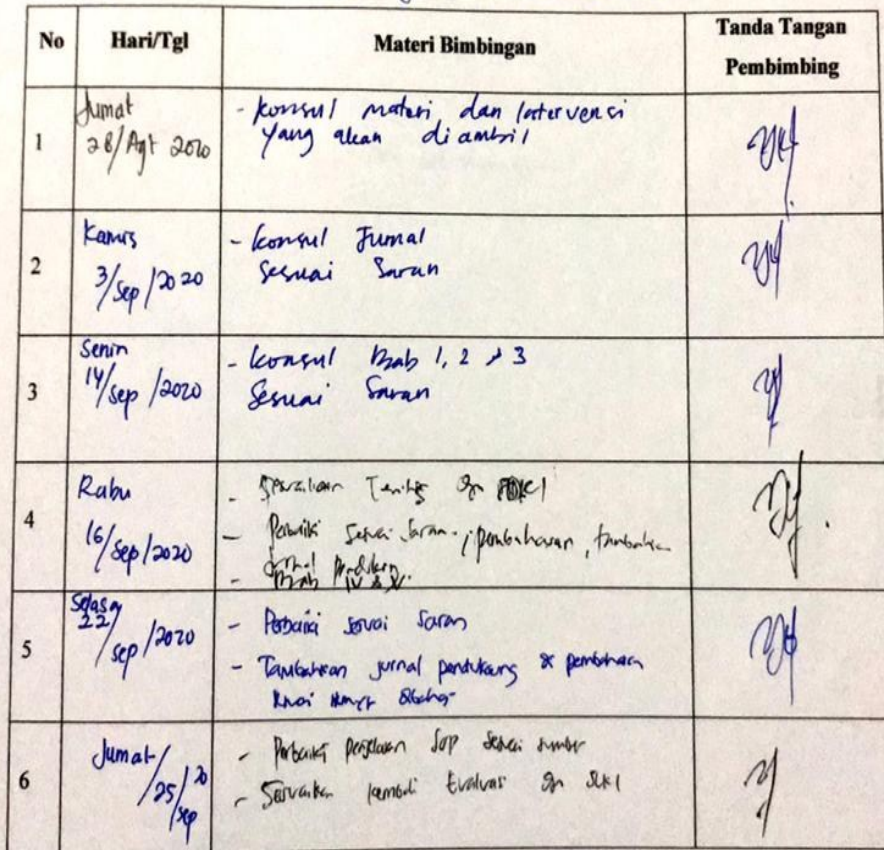 No Hari/Tgl Materi Bimbingan Tanda Tangan
Pembimbing
1
Jumat
28/Agt 2020
- konsul materi dan intervensi
yang akan diambil
2
Kamis
3/Sep/2020
- konsul Jurnal
sesuai Saran
3
Senin
14/Sep/2020
- konsul Bab 1, 2 & 3
Sesuai Saran
4
Rabu
16/Sep/2020
-
- Perbaiki sesuai saran, pembahasan, tambahkan
jurnal pendukung
- Bab IV & V.
5
Selasa
22/Sep/2020
- Perbaiki sesuai saran
- Tambahkan jurnal pendukung & pembahasan
6
Jumat/
25/Sep 20
- Perbaiki penjelasan SOP sesuai sumber
- Sesuaikan kembali Evaluasi dgn SLKI